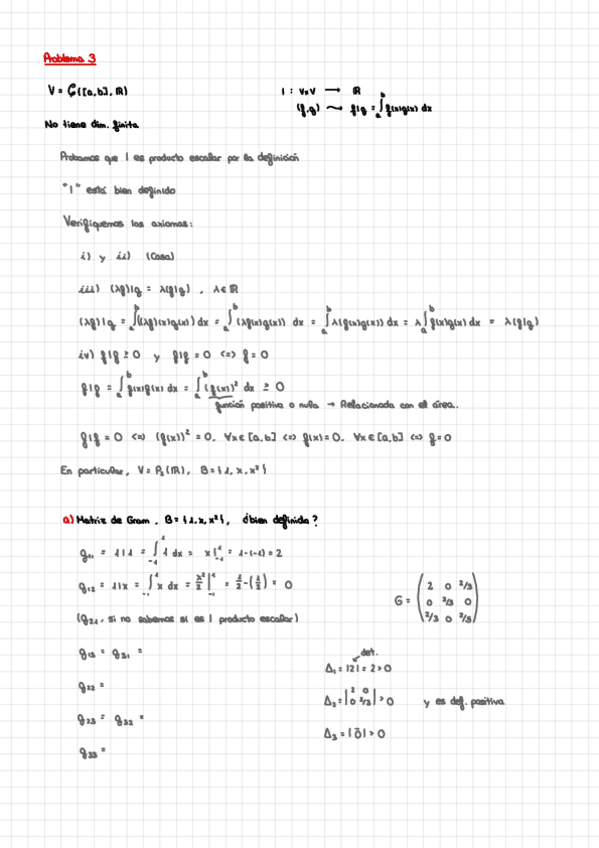 Problema 3
V = C([a,b], ℝ)
| : V×V ⟶ ℝ
(f,g) ⟿ f|g = ∫ₐᵇ f(x)g(x) dx
No tiene dim. finita
Probamos que | es producto escalar por la definición
"|" está bien definido
Verifiquemos los axiomas:
i) y ii) (Casa)
iii) (λf)|g = λ(f|g) , λ∈ℝ
(λf)|g = ∫ₐᵇ((λf)(x)g(x)) dx = ∫ₐᵇ (λf(x)g(x)) dx = ∫ₐᵇ λ(f(x)g(x)) dx = λ∫ₐᵇ f(x)g(x) dx = λ(f|g)
iv) f|f ≥ 0 y f|f = 0 <=> f = 0
f|f = ∫ₐᵇ f(x)f(x) dx = ∫ₐᵇ (f(x))² dx ≥ 0
función positiva o nula → Relacionada con el área..
f|f = 0 <=> (f(x))² = 0, ∀x∈[a,b] <=> f(x)=0, ∀x∈[a,b] <=> f=0
En particular, V = P₂(ℝ), B={1, x, x²}
a) Matriz de Gram, B={1,x,x²}, ¿bien definida?
g₁₁ = 1|1 = ∫₋₁¹ 1 dx = x|₋₁¹ = 1-(-1) = 2
g₁₂ = 1|x = ∫₋₁¹ x dx = x²/2 |₋₁¹ = 1/2-(1/2) = 0
G = ( 2 0 2/3
0 2/3 0
2/3 0 2/5 )
(g₂₁, si no sabemos si es | producto escalar)
g₁₃ = g₃₁ =
det.
Δ₁ = |2| = 2 > 0
g₂₂ =
Δ₂ = | 2 0
0 2/3 | > 0 y es def. positiva
g₂₃ = g₃₂ =
Δ₃ = | | > 0
g₃₃ =